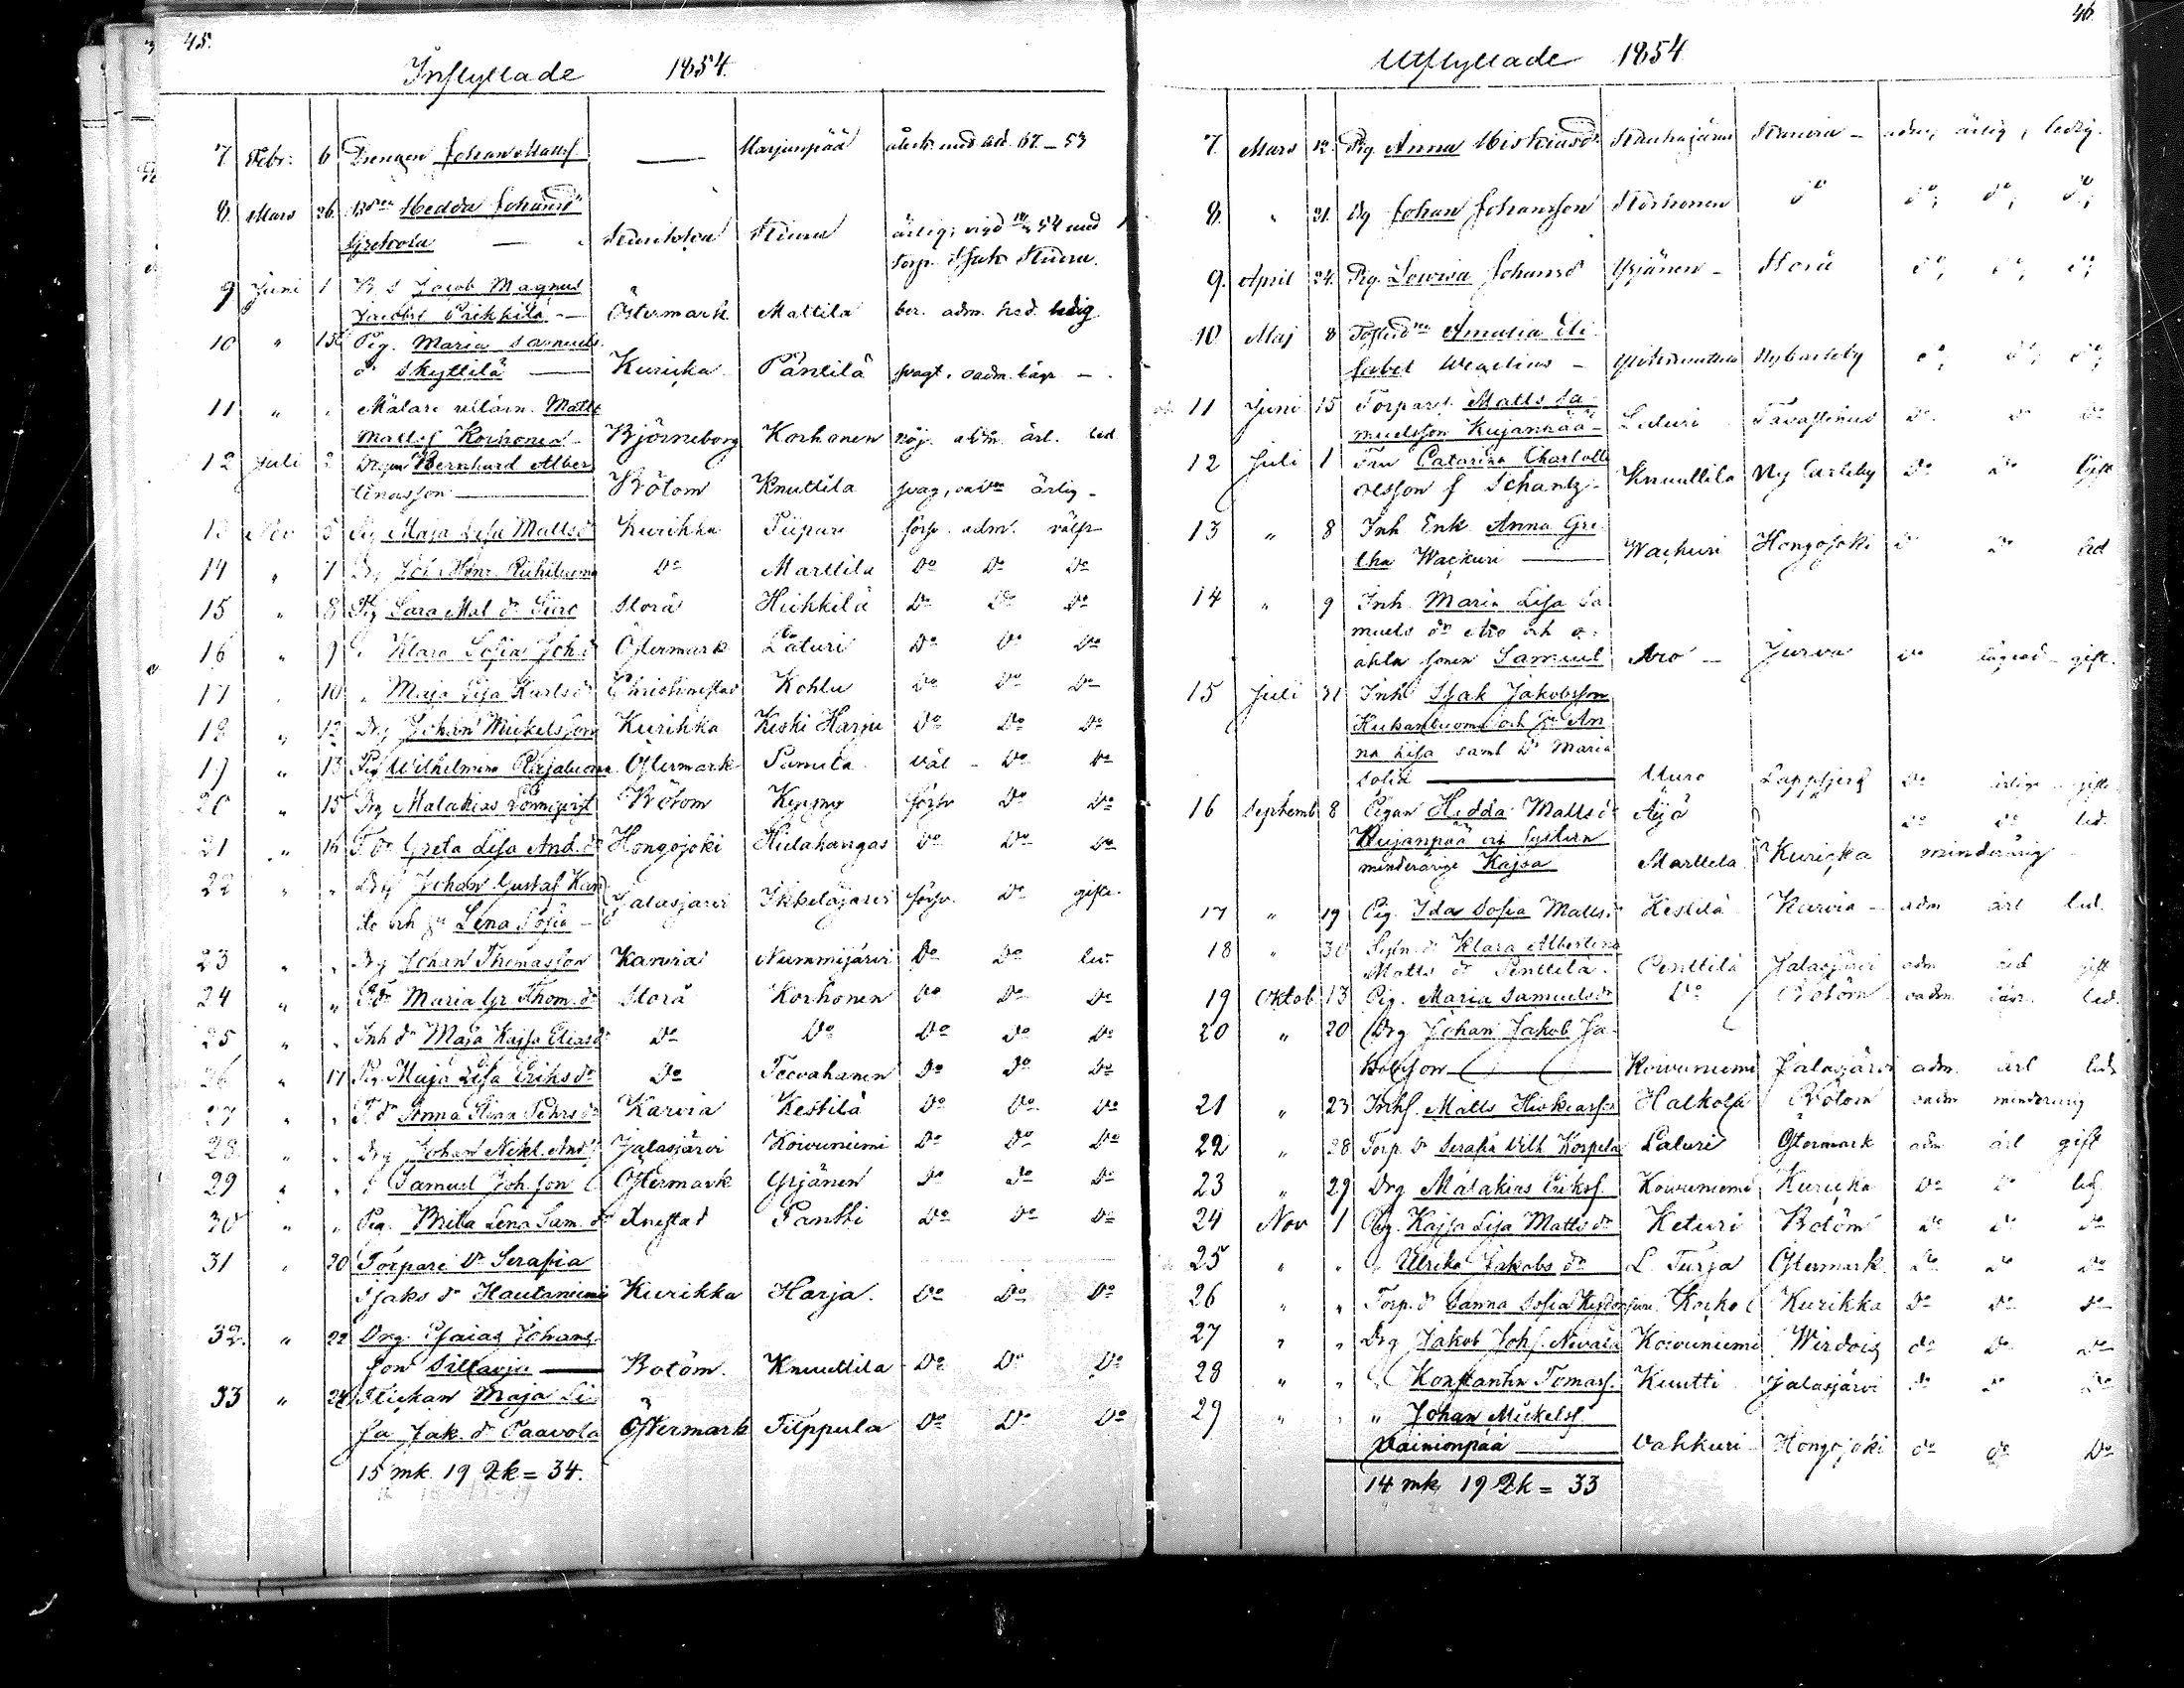 45.
Inflyttade 1854.
7 Febr: 6 Drengen Johan Matts. — Marjanpää återk. med att. 67 – 53
8. Mars 26. Hedda Johansd
— Kurikka ärlig; 54 med
torp. Isak
9 Juni 1 B S Jacob Magnus
Jacobs. Prikkilä — Östermark Mattila ber. adm. ledig
10 " 15 Pig. Maria Samuels
dr Skyttilä — Kuricka Päntilä svagt. oadm.
11 " " Mälare Matts
Matts. Korhonen – Björneborg Korhonen nöj. adm. ärl. led
12 Juli 2 Drgen Bernhard Alber
tinasson — Bötom Knuttila svag, ärlig –
13 Nov 5 Pig Maja Lisa Mattsd Kurikka Piipari försv. adm. välfr
14 " 7 Drg Joh. Henr. Riihiluoma Do Marttila Do Do Do
15 " 8 Pig Sara Mat. dr Siiro Storå Hiihkilä Do Do Do
16 " 9 " Klara Sofia Joh. d Östermark Laturi Do Do Do
17 " 10 " Maja Lisa Karlsdr Christinestad Kohlu Do Do Do
18 " 12 Drg Johan Mickelsson Kurikka Keski Harju Do Do Do
19 " 13 Pig Wilhelmina Östermark väl – Do Do
20 " 15 Drg Malakias Lönnqvist Bötom försv Do Do
21 " 16 T. dr Greta Lisa And. dr Hongojoki Hiilahangas Do Do Do
22 " " Drg Johan Gustaf
och Lena Sofia – Jalasjärvi Ikkeläjärvi försv. Do gifta.
23 " " Drg Johan Thomasson Karvia Nummijärvi Do Do led
24 " " T. dr Maria Gr Thom. dr Storå Korhonen Do Do Do
25 " " Inh dr Maja Kajsa Eliasd Do Do Do Do Do
26 " 17 Pig. Maja Lisa Eriksdr Do Teevahanen Do Do Do
27 " " T. dr Anna Stina Pehrsdr Karvia Kestilä Do Do Do
28. " " Drg Johan Nikl. And. Jalasjärvi Koivuniemi Do Do Do
29 " " " Samuel Joh. son Östermark Yrjänen Do Do Do
30 " " Pig. Brita Lena Sam. dr Do Do Do
31 " 20 Torpare Dr Serafia
Isaks dr Hautaniemi Kurikka Harja. Do Do Do
32. " 22 Drg. Esaias Johans
son — Botöm. Knuuttila Do Do Do
33 " 24 Maja Li
sa Jak. dr Paavola Östermark Filppula Do Do Do
15 mk. 19 Qk = 34.
46.
Utflyttade 1854
7. Mars 12. Pig. Anna Hiskiasd. Kauhajärvi Karvia – adm; ärlig; ledig.
8. " 21. Dg Johan Johansson Korhonen do do; do; do;
9. April 24. Pig. Lovisa Johansd Yrjänen – Storå do; do; do;
10 Maj 8 Amalia Eli
sabet Wegelius – Nykarleby do; do; do;
11 Juni 15 Torpar. Matts Sa-
muelsson Kujanpää – Laturi Tavastehus Do Do Do
12 Juli 1 Fru Catarina Charlotta
Olsson f Schantz – Knuuttila Ny Carleby Do Do gift
13 " 8 Inh. Enk. Anna Gre
tha Wackuri — Wackuri Hongojoki Do Do led
14 " 9 Inh. Maria Lisa Sa
muels dr Aro och o-
äkta sonen Samuel Aro – Jurva Do – gift.
15 Juli 31 Inh. Isak Jakobsson
och hu An
na Lisa samt Dr Maria
Sofia — Muro Lappfjerd Do gifte
16 Septemb 8 Pigan Hedda Mattsdr Äijö Do Do led.
Kujanpää och systern
minderårige Kajsa Marttila Kuricka minderårig
17 " 19 Pig. Ida Sofia Mattsdr Kestilä Karvia – adm ärl led.
18 " 30 Klara Albertina
Matts dr Penttilä. Penttilä Jalasjärvi adm gift
19 Oktob 13 Pig. Maria Samuelsdr Do Botöm oadm led.
20 " 20 Drg Johan Jakob Ja-
kobsson — Koivuniemi Jalasjärvi adm. ärl led.
21 " 23 Inhs. Matts Hiskiasson Bötom oadm minderårig
22 " 28 Torp. dr Serafia Vilh Korpela Laturi Östermark adm ärl gift
23 " 29 Drg Malakias Eriks. Koivuniemi Kuricka Do Do led
24 Nov 1 Pig. Kajsa Lisa Mattsdr Keturi Botöm Do Do Do
25 " " " Ulrika Jakobs dr L. Turja Östermark Do Do Do
26 " " Torp. dr Sanna Sofia Kurikka Do Do Do
27 " " Drg Jakob Joh. Nevala Koivuniemi Wirdois do Do Do
28 " " " Konstantin Tomass. Kuutti Jalasjärvi do Do Do
29 " " " Johan Mickelss.
Vainionpää — Vahkuri Hongojoki do do Do
14 mk. 19 Qk = 33